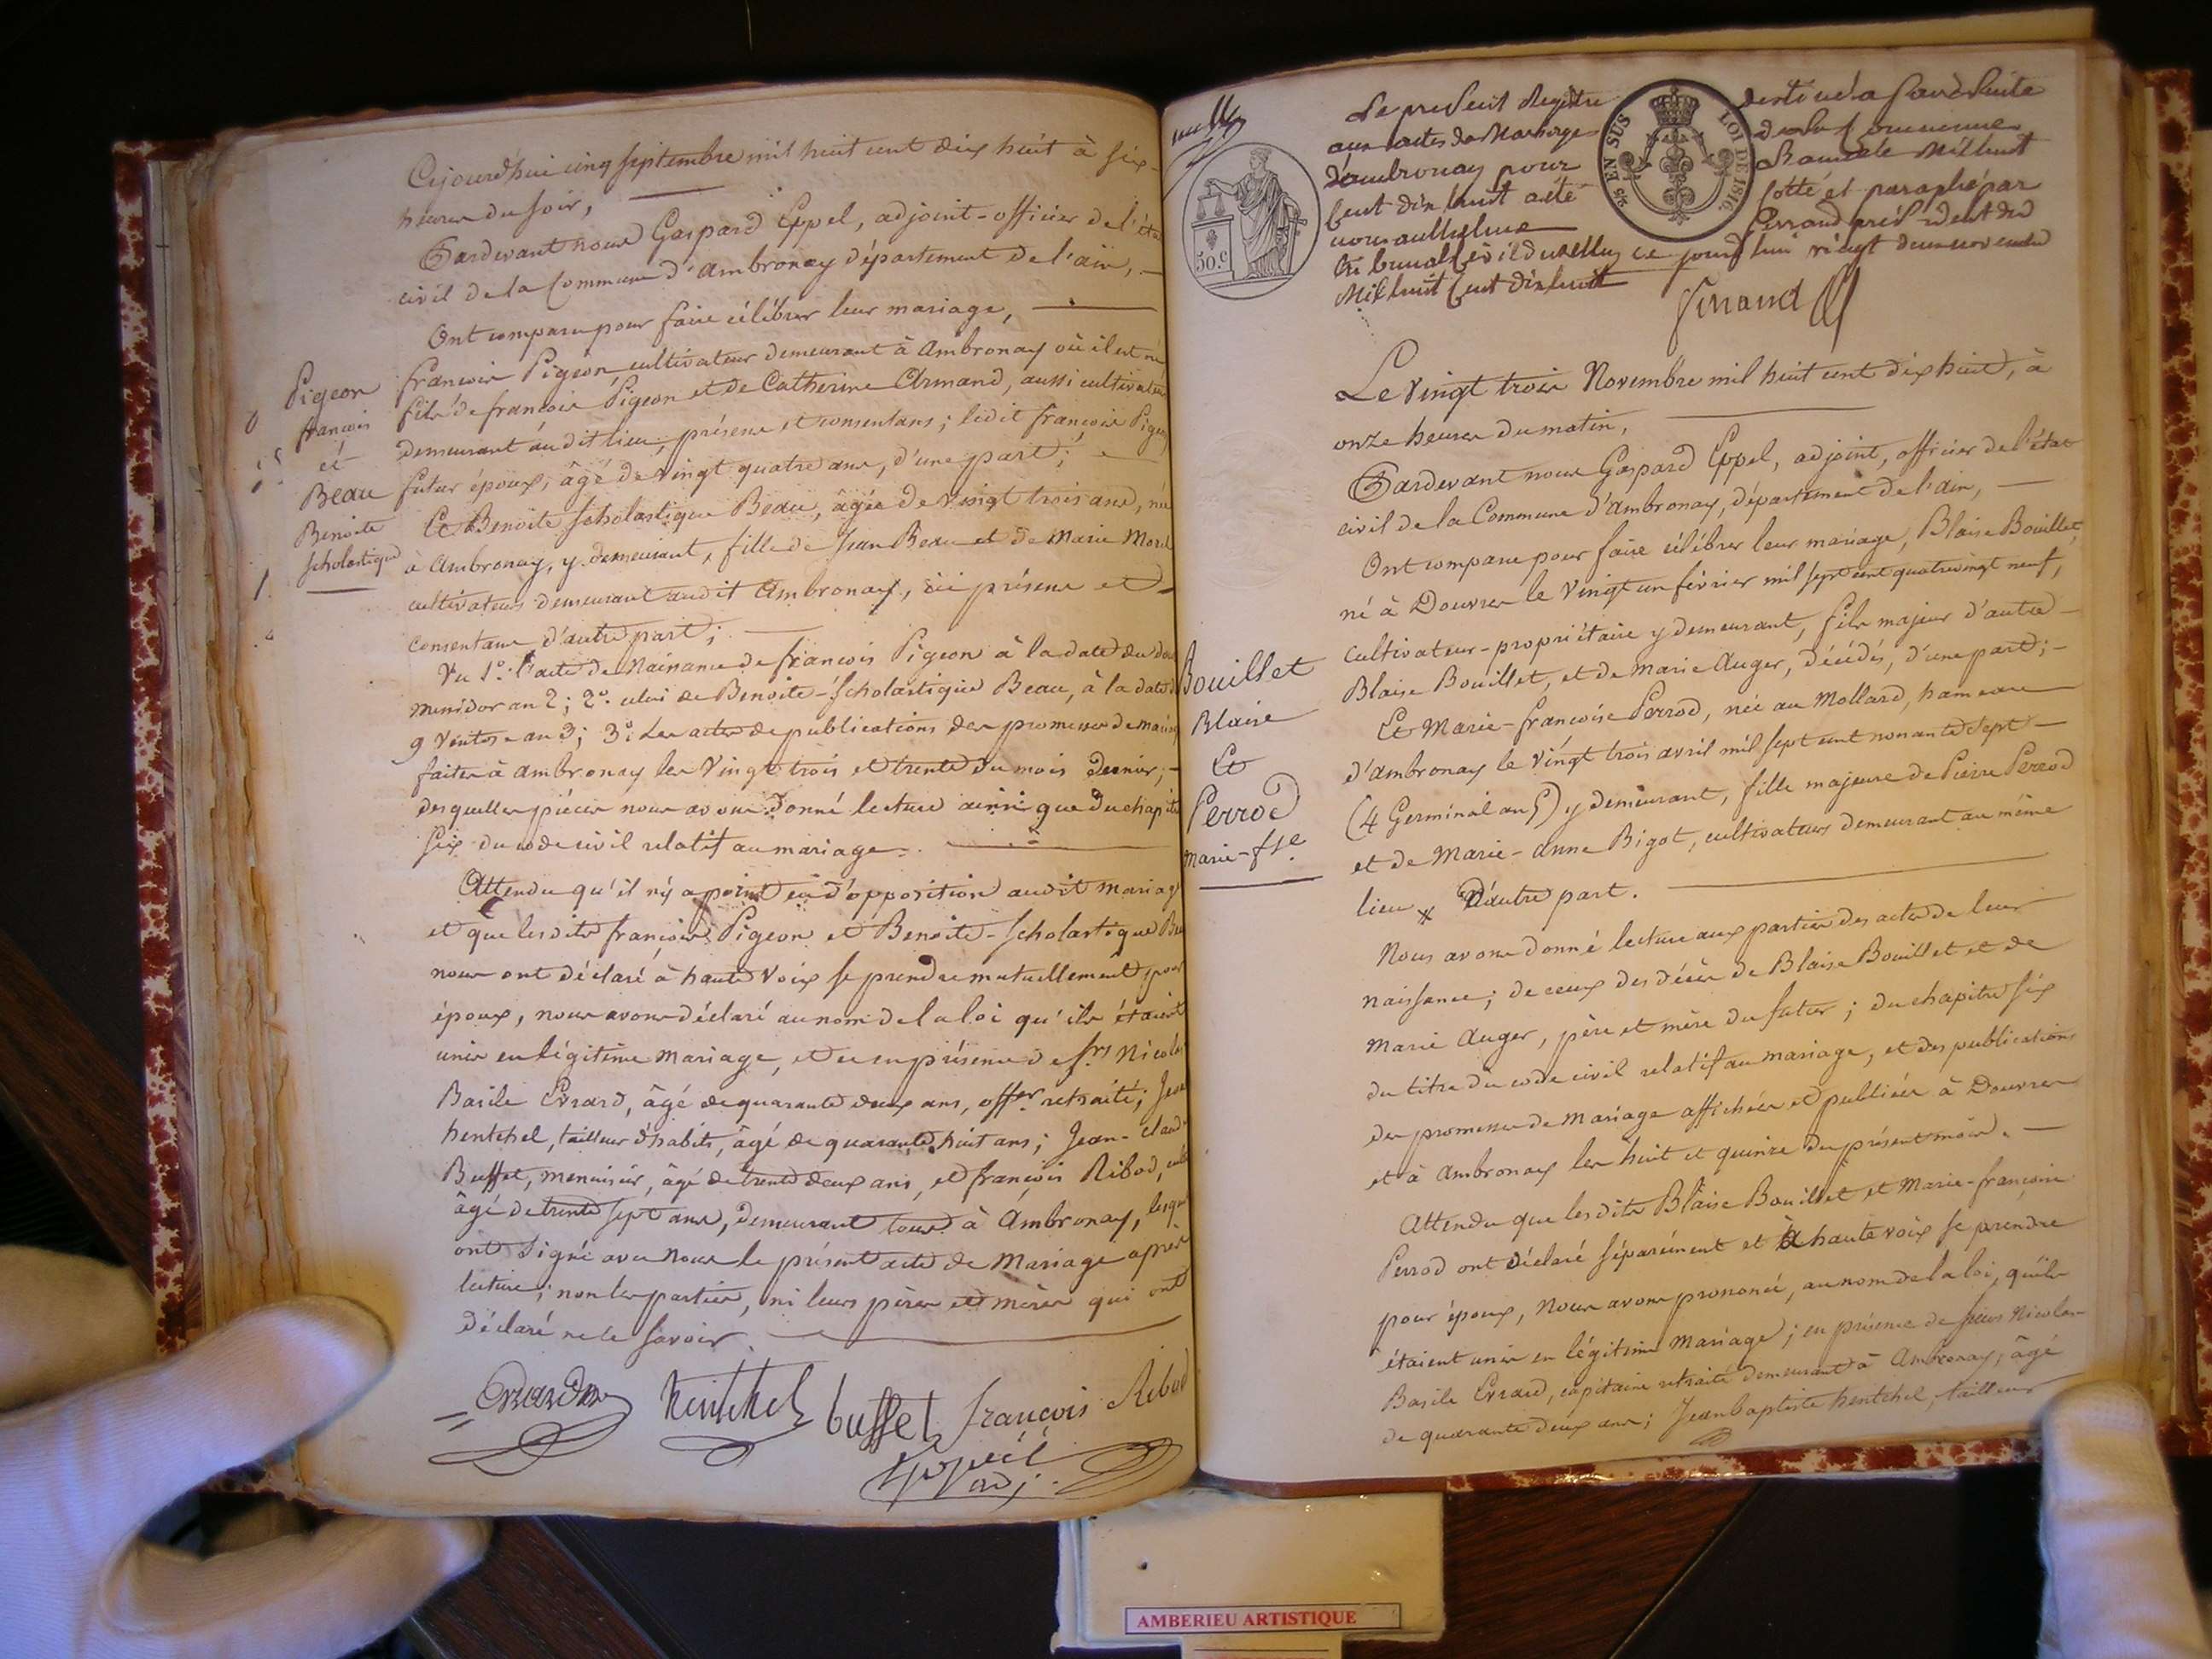 Cejourd'hui cinq septembre mil huit cent dix huit à six
heures du soir,
Pardevant nous Gaspard Eppel, adjoint-officier de l'état
civil de la Commune d'ambronay département de l'ain,
Ont comparu pour faire célébrer leur mariage,
françois Pigeon, cultivateur demeurant à Ambronay où il est né
fils de françois Pigeon et de Catherine Armand, aussi cultivateurs
demeurant audit lieu, présens et consentans; ledit françois Pigeon
futur époux, âgé de vingt quatre ans, d'une part;
Et Benoite Scholastique Beau, âgée de vingt trois ans, née
à Ambronay, y demeurant, fille de Jean Beau et de Marie Morel
cultivateurs demeurant audit Ambronay, ici présens et
consentans d'autre part;
Vu 1.° l'acte de Naissance de françois Pigeon à la date du
messidor an 2; 2.° celui de Benoite-Scholastique Beau, à la date du
9 Ventose an 3; 3.° Les actes de publications des promesses de mariage
faites à ambronay les Vingt trois et trente du mois dernier,
desquelles pièces nous avons donné lecture ainsi que du chapitre
six du code civil relatif au mariage.
Attendu qu'il n'y a point eu d'opposition audit mariage
et que lesdits françois Pigeon et Benoite-Scholastique Beau
nous ont déclaré à haute voix se prendre mutuellement pour
époux, nous avons déclaré au nom de la loi qu'ils étaient
unis en légitime mariage, et ce en présence de srs Nicolas
Basile Evrard, âgé de quarante deux ans, offer retraité; Jean
hentchel, tailleur d'habits, âgé de quarante huit ans; Jean-Claude
Buffet, menuisier, âgé de trente deux ans, et françois Ribod,
âgé de trente sept ans, demeurant tous à Ambronay, lesquels
ont signé avec Nous le présent acte de Mariage après
lecture; non les parties, ni leurs pères et mères qui ont
déclaré ne le savoir.
hentchel buffet françois Ribod
Eppel
adj.
Pigeon
françois
et
Beau
Benoite
Scholastique
Le présent Registre destiné a faire suite
aux actes de Mariage de la Commune
d'ambronay pour l'année Mil huit
Cent dix huit a été Cotté et paraphé par
nous Perrand président du
tribunal Civil de ce jourd'hui vingt deux novembre
Mil huit Cent dix huit
50.c
5/6 EN SUS LOI DE 1816.
Le Vingt trois Novembre mil huit cent dix huit, à
onze heures du matin,
Pardevant nous Gaspard Eppel, adjoint, officier de l'état
civil de la Commune d'ambronay, département de l'ain,
Ont comparu pour faire célébrer leur mariage, Blaise Bouillet,
né à Douvres le Vingt un février mil sept cent quatrevingt neuf,
cultivateur-propriétaire y demeurant, fils majeur d'autre
Blaise Bouillet, et de Marie Auger, décédés, d'une part;
Et Marie-françoise Perrod, née au Mollard, hameau
d'ambronay le vingt trois avril mil sept cent nonante sept
(4 Germinal an 5) y demeurant, fille majeure de Pierre Perrod
et de Marie-anne Bigot, cultivateurs demeurant au même
lieu d'autre part.
Nous avons donné lecture aux parties des actes de leur
naissance; de ceux des décès de Blaise Bouillet et de
Marie Auger, père et mère du futur; du chapitre six
du titre du code civil relatif au mariage, et des publications
des promesses de mariage affichées et publiées à Douvres
et à Ambronay les huit et quinze du présent mois.
Attendu que lesdits Blaise Bouillet et Marie-françoise
Perrod ont déclaré séparément et à haute voix se prendre
pour époux, Nous avons prononcé, au nom de la loi, qu'ils
étaient unis en légitime mariage; en présence de sieurs Nicolas
Basile Evrard, capitaine retraité demeurant à Ambronay, âgé
de quarante deux ans; Jean baptiste hentchel, tailleur
Bouillet
Blaise
Et
Perrod
marie-fse
AMBERIEU ARTISTIQUE